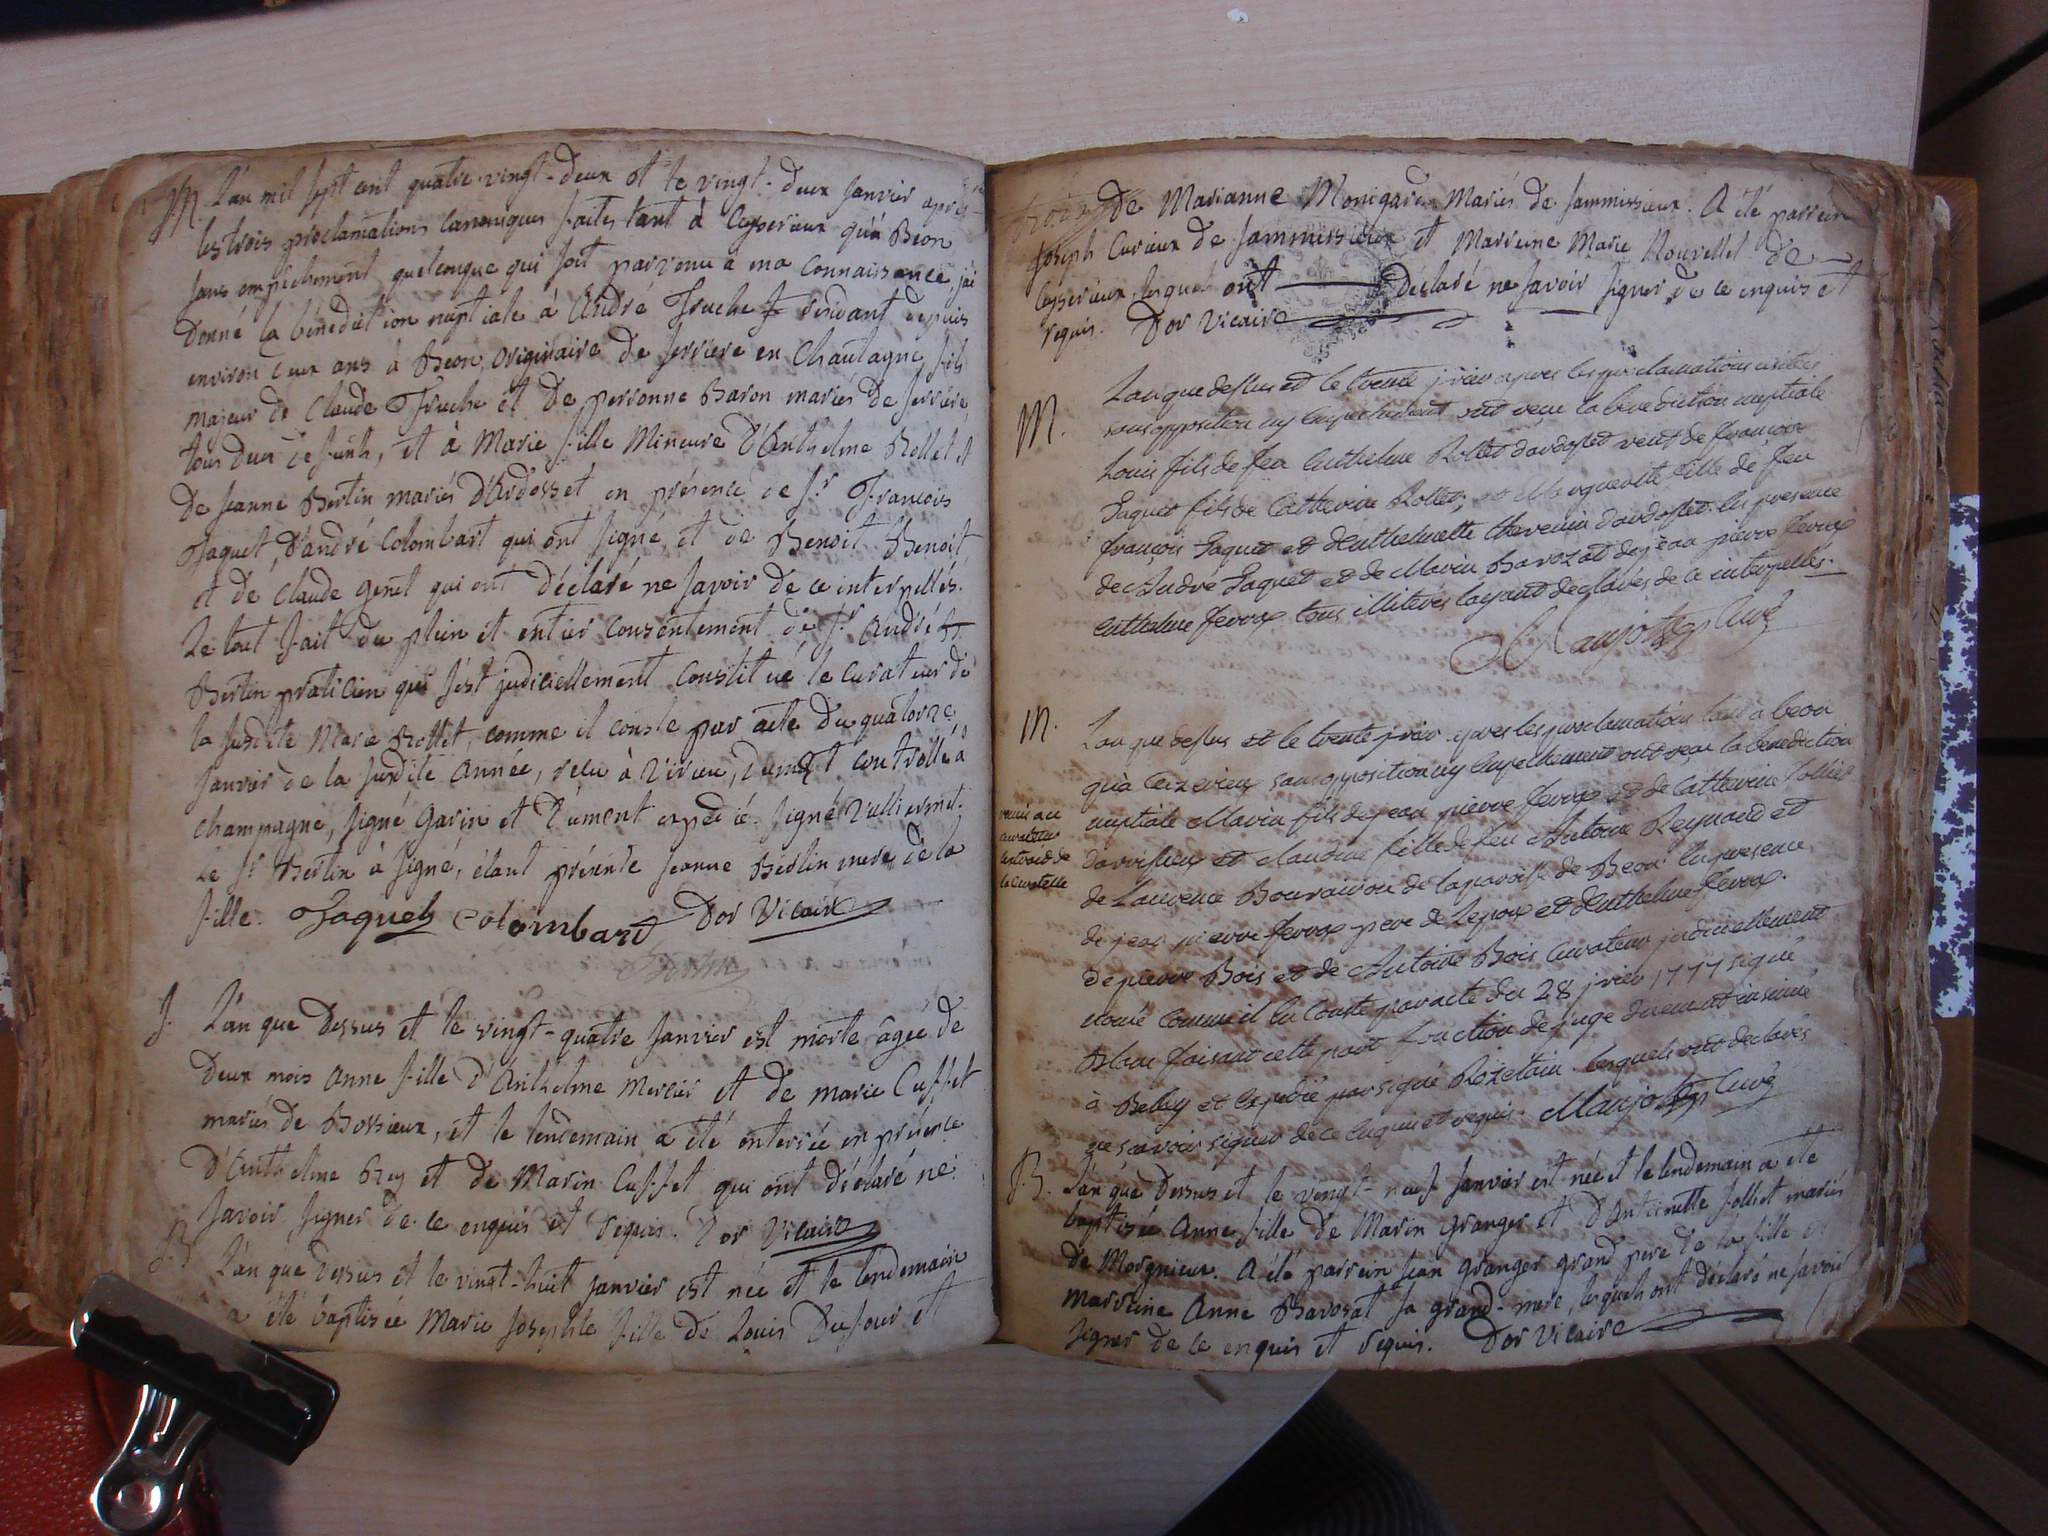 M. L'an mil sept cent quatre-vingt-deux et le vingt-deux janvier après
les trois proclamations canoniques faites tant à Ceyserieux qu'à Beon
sans empêchement quelconque qui soit parvenu à ma connaissance, j'ai
donné la bénédiction nuptiale à André Truche résidant depuis
environ deux ans à Beon, originaire de Serriere en Chautagne, fils
majeur de Claude Truche et de perronne Baron mariés de Serriere,
tous deux défunts, et à Marie fille Mineure d'Anthelme Rollet et
de Jeanne Bertin mariés d'Ardosset en présence de Sr François
Jaquet, d'andré Colombart qui ont signé, et de Benoît Benoît
et de Claude genet qui ont déclaré ne savoir de ce interpellés.
Le tout fait du plein et entier consentement de Sr André
Bertin praticien qui s'est judiciellement constitué le curateur de
la susdite Marie Rollet, comme il conste par acte du quatorze
janvier de la susdite année, reçu à Virieu, dument controllé à
champagne, signé Garin et dument expedié. signé
Le Sr Bertin à signé, étant présente Jeanne Bertin mere de la
fille. Jaquet Colombart Dor Vicaire
Bertin
S. L'an que dessus et le vingt-quatre janvier est morte âgée de
deux mois anne fille d'Anthelme Mercier et de marie Cuffet
mariés de Bossieux, et le lendemain a été enterrée en présence
d'Anthelme Rey et de Marin Cuffet qui ont déclaré ne
savoir signer de ce enquis et requis. Dor Vicaire
B. L'an que dessus et le vingt-huit janvier est née et le lendemain
a été baptisée Marie Josephte fille de Louis Dufour et
trois
de Marianne Monigard Mariés de Sammissieux. A été parrein
Joseph Curieux de Sammissieux et Marreine Marie Nouvellet de
Ceyserieux, lesquels ont déclaré ne savoir signer de ce enquis et
requis. Dor Vicaire
M. L'an que dessus et le trente jvier apres les proclamations usitées
sans opposition ny empechement ont reçu la benediction nuptiale
Louis fils de feu Anthelme Rollet d'ardosset veuf de françoise
Jaquet fils de Catherine Rollet, et Marguerite fille de feu
françois Jaquet et d'Anthelmette Chevenin d'ardosset. En presence
de André Jaquet et de Marin Barozat de jean pierre ferroz
anthelme ferroz tous illiterés layant declarés de ce interpellés.
Maujot Curé
M. L'an que dessus et le trente jvier apres les proclamations tant a beon
qu'a Ceizerieu sans opposition ny empechement ont reçu la benediction
nuptiale Marin fils de jean pierre ferroz et de Catherine Jolliet
d'avrissieu et Claudine fille de feu Antoine Reynaud et
de Laurence de la paroisse de Beon. En presence
de jean pierre ferroz pere de l'epoux et d'Anthelme ferroz.
de pierre Bois et de Antoine Bois Curateur judiciellement
nomé comme il en Conste par acte du 28 jvier 1777 signé
faisant cette part fonction de juge duement insinué
à Belley et expedié par signé Rozetain. lesquels ont declarés
ne scavoir signer de ce enquis et requis. Maujot Curé
B. L'an que dessus et le vingt-neuf janvier est née et le lendemain a été
baptisée Anne fille de Marin Granger et d'Antoinette Jolliet mariés
de Morgnieux. A été parrein Jean Granger grand pere de la fille et
marreine Anne Barozat sa grand-mere, lesquels ont déclaré ne savoir
signer de ce enquis et requis. Dor Vicaire